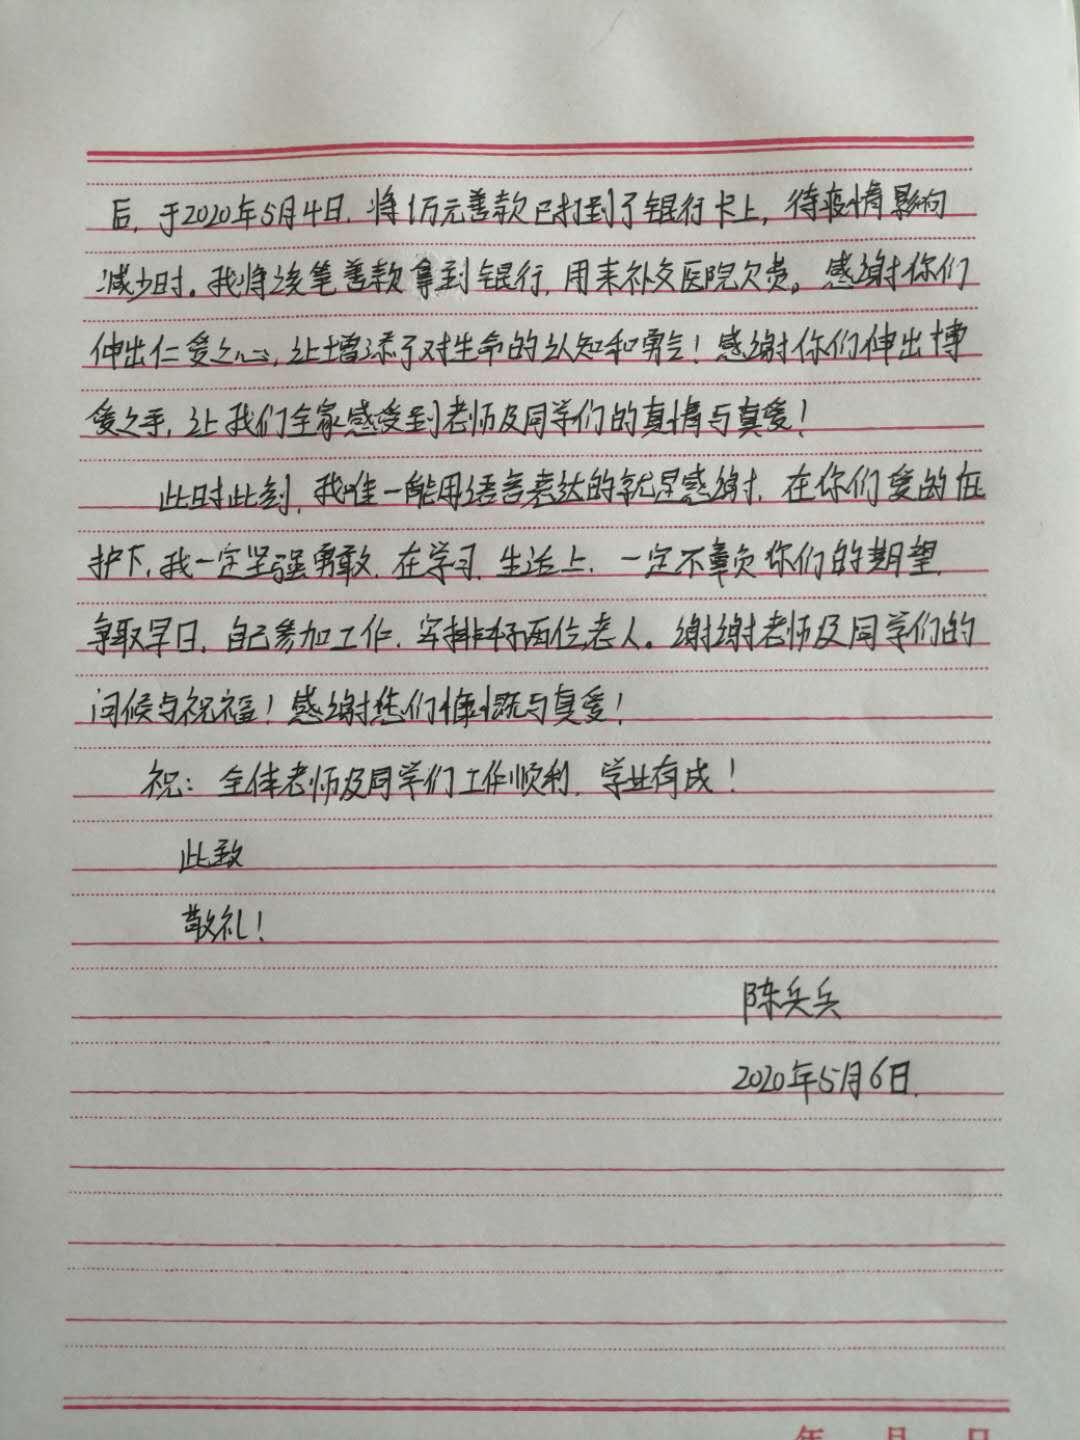 后，于2020年5月4日，将1万元善款已打到了银行卡上，待疫情影响
减少时。我将该笔善款拿到银行，用来补交医院欠费。感谢你们
伸出仁爱之心，让增添了对生命的认知和勇气！感谢你们伸出博
爱之手，让我们全家感受到老师及同学们的真情与真爱！
此时此刻，我唯一能用语言表达的就是感谢，在你们爱的佐
护下，我一定坚强勇敢，在学习，生活上，一定不辜负你们的期望，
争取早日，自己参加工作，安排好两位老人。谢谢老师及同学们的
问候与祝福！感谢您们慷慨与真爱！
祝：全体老师及同学们工作顺利，学业有成！
此致
敬礼！
陈兵兵
2020年5月6日.
年 月 日